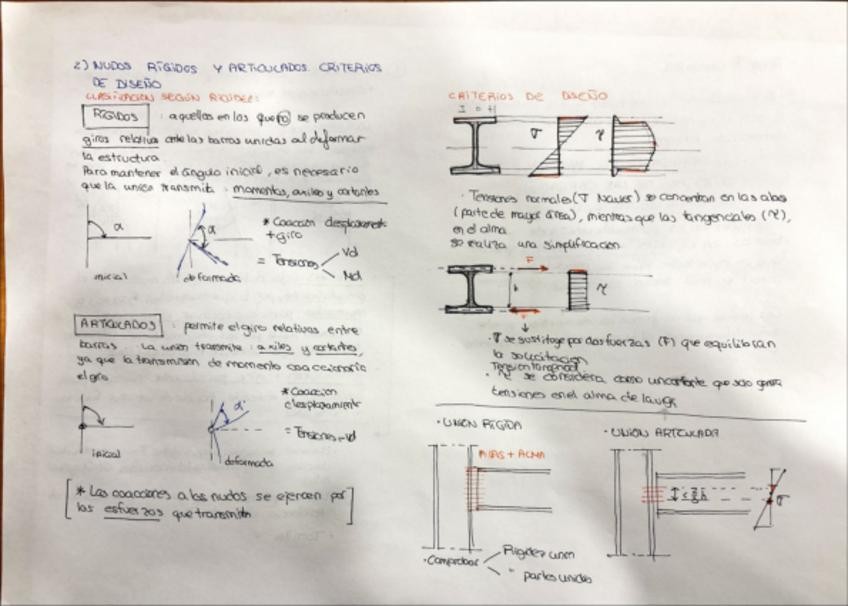 2) NUDOS RÍGIDOS Y ARTICULADOS. CRITERIOS
DE DISEÑO
CLASIFICACIÓN SEGÚN RIGIDEZ:
RÍGIDOS : aquellos en los que no se producen
giros relativos ante las barras unidas al deformar
la estructura.
Para mantener el ángulo inicial, es necesario
que la unión transmita: momentos, axiles y cortantes
α
inicial
α
deformada
* Coacción desplazamiento
+ giro
= Tensiones
Vd
Md
ARTICULADOS : permite el giro relativos entre
barras. La unión transmite: axiles y cortantes,
ya que la transmisión de momento coaccionaría
el giro
inicial
α'
deformada
* Coacción
desplazamiento
= Tensiones Vd
* Las coacciones a los nudos se ejercen por
los esfuerzos que transmiten
CRITERIOS DE DISEÑO
I o H
σ
τ
· Tensiones normales (σ Navier) se concentran en las alas
(parte de mayor área), mientras que las tangenciales (τ),
en el alma.
se realiza una simplificación
F
h
τ
F
· σ se sustituye por dos fuerzas (F) que equilibran
la solicitación
Tensión tangencial
· τ se considera como un cortante que solo genera
tensiones en el alma de la viga
· UNIÓN RÍGIDA
ALAS + ALMA
· Comprobar
Rigidez unión
" partes unidas
· UNIÓN ARTICULADA
σ